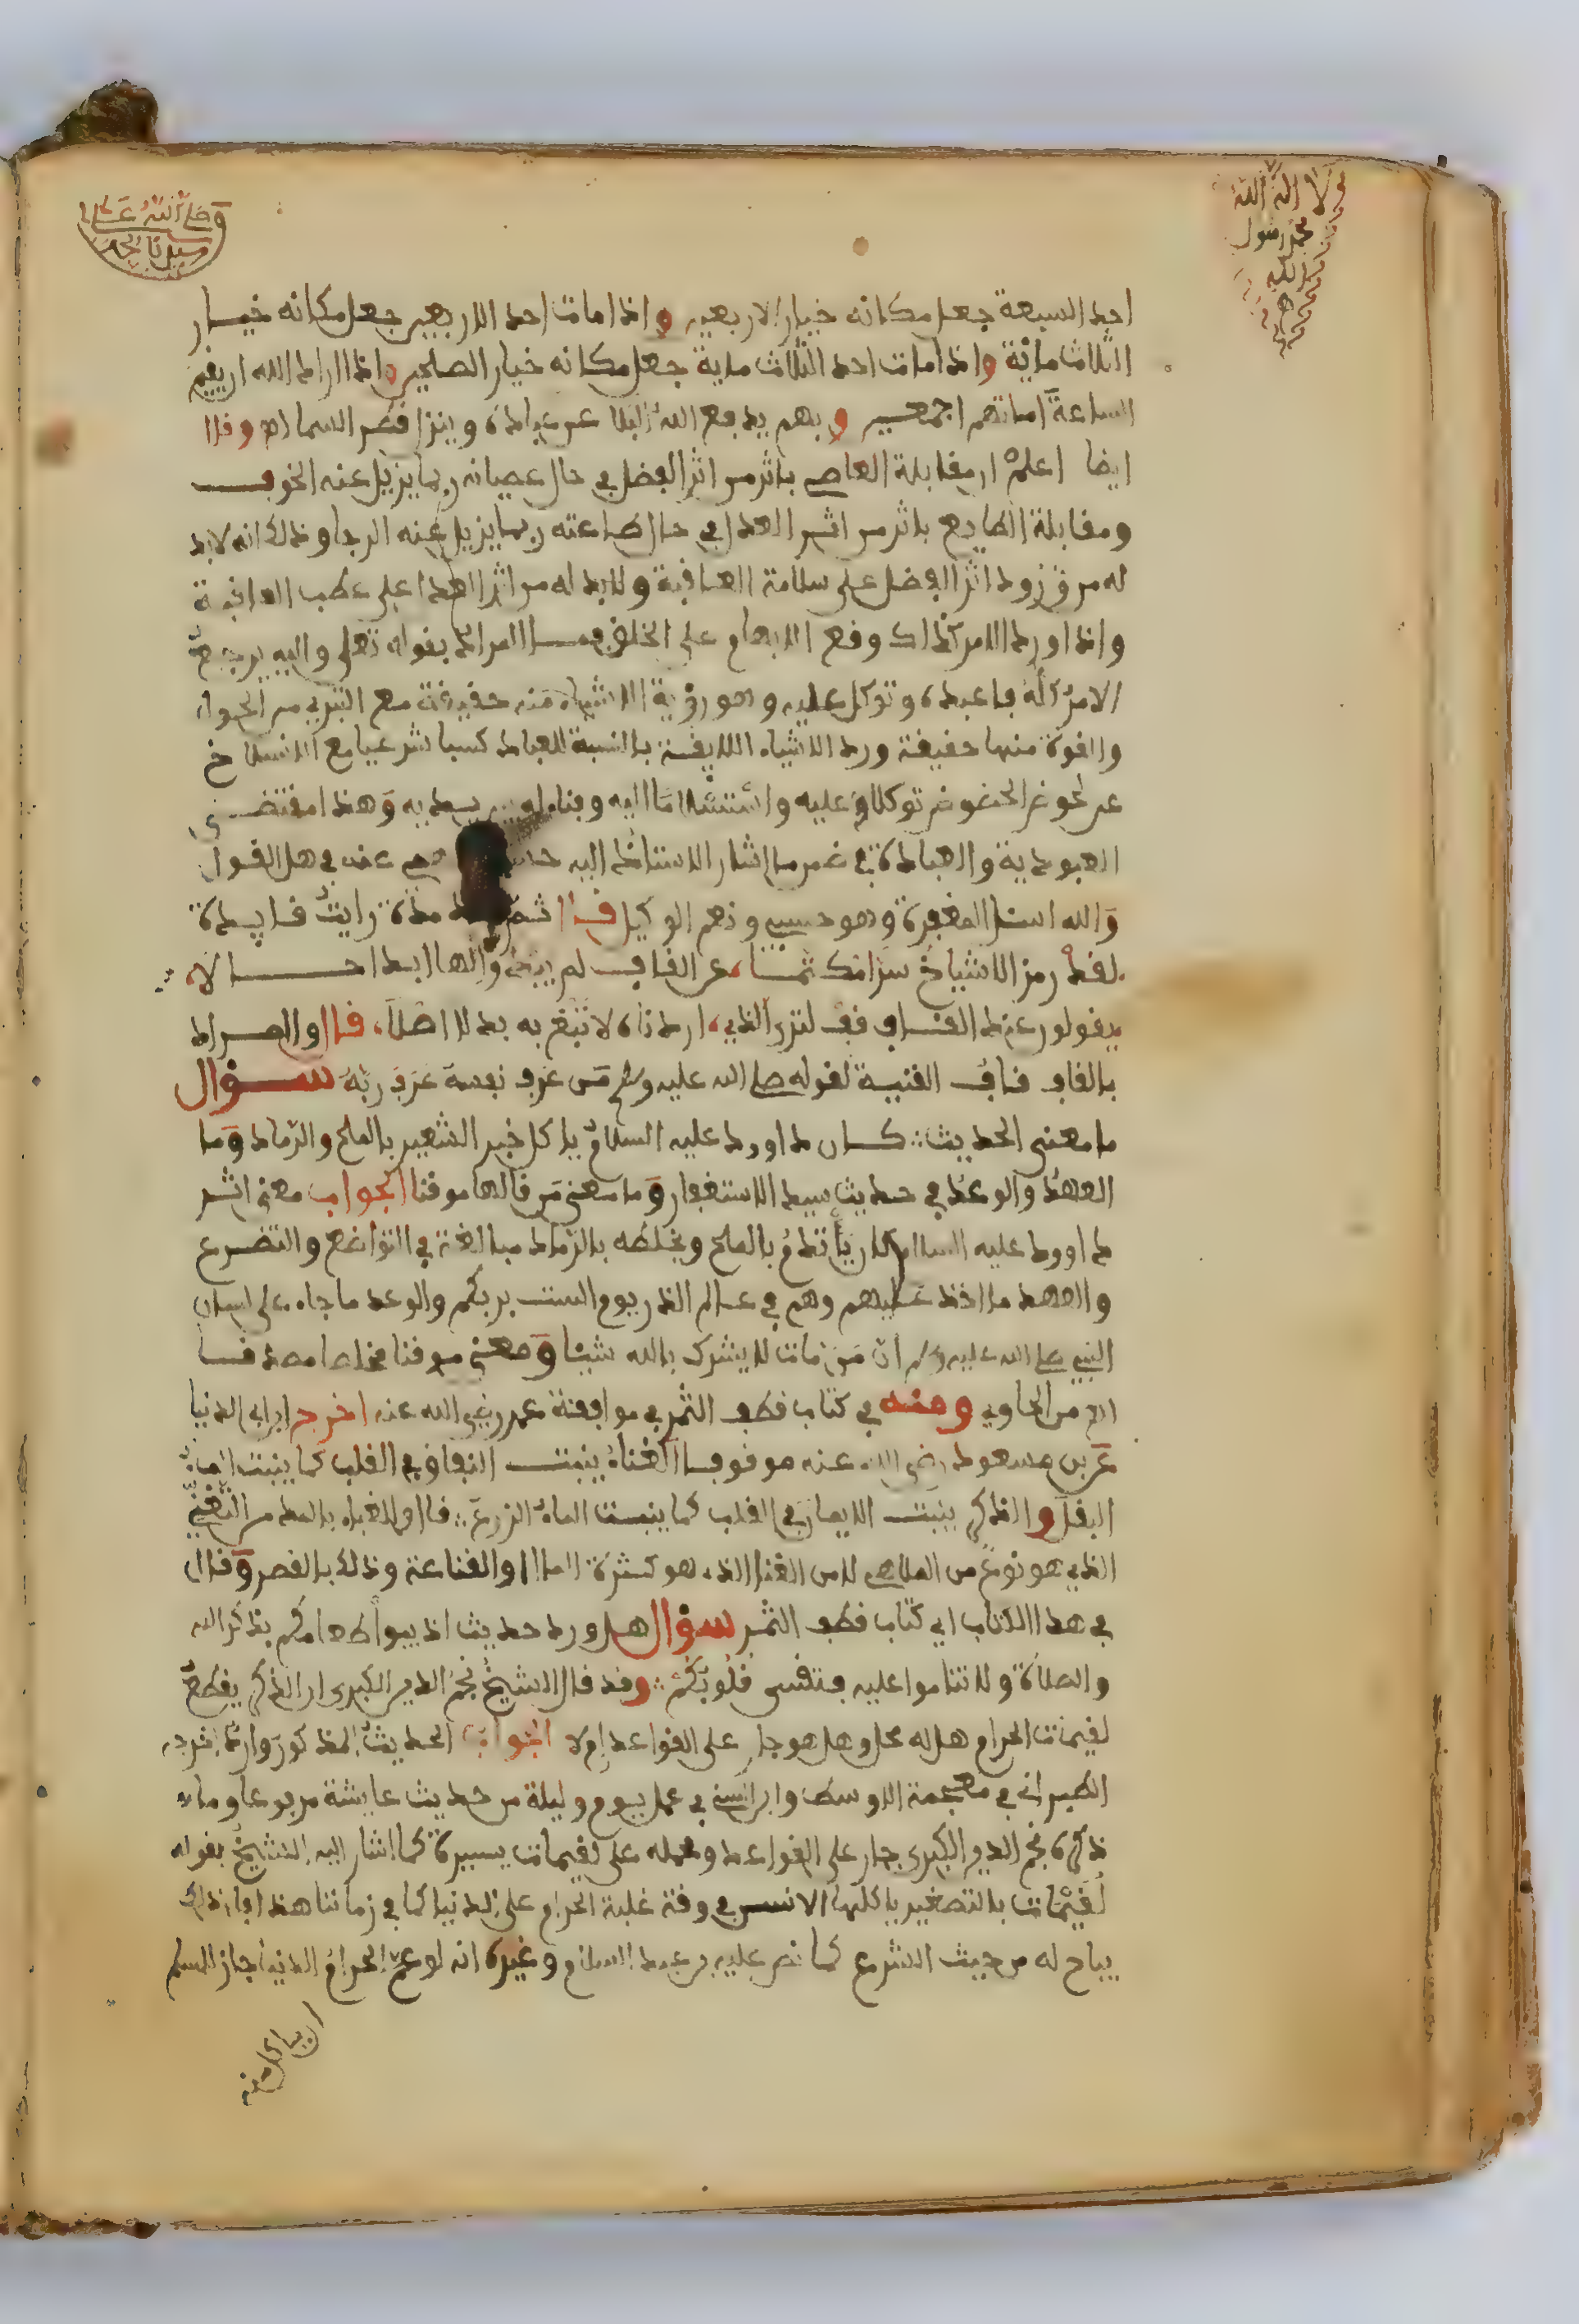 لا اله الا الله
محمد رسول
الله
وصلى الله على
سيدنا محمد
احد السبعة جعل مكانه خيار الاربعين واذا مات احد الاربعين جعل مكانه خيار
الثلاث مائة واذا مات احد الثلاث مائة جعل مكانه خيار الصالحين واذا اراد الله ان يقيم
الساعة اماتهم اجمعين وبهم يدفع الله البلا عن عباده وينزل قطر السماء اه وقال
ايضا اعلم ان مقابلة العاصي باثر من اثر الفضل في حال عصيانه ربما يزيل عنه الخوف
ومقابلة الطايع باثر من اثر العدل في حال طاعته ربما يزيل عنه الرجا وذلك انه لابد
له من ورود اثر الفضل على سلامة العافية ولابد له من اثر العدل على عطب العاقبة
واذا ورد الامر كذلك وقع الابهام على الخلق بقوله تعلى واليه يرجع
الامر كله فاعبده وتوكل عليه وهو رؤية الاشياء منه حقيقة مع التبري من الحول
والقوة منها حقيقة ورد الاشياء اللايقة بالنسبة للعباد كسبا شرعيا مع الانسلاخ
توكلا عليه واستسلاما اليه وفناء بين يديه وهذا مقتضى
العبودية والعبادة اشار الاستاذ اليه في هذا القول
والله اسئل المغفرة وهو حسبي ونعم الوكيل قال مدة رايت فايدة
لفظ رمز الاشياخ عن القاف لم ابدا الا
يقولون عند القاف قف اردناه لا تبغ به بدلا اصلا، قال والمراد
بالقاف قاف القنية لقوله صلى الله عليه وسلم من عرف نفسه عرف ربه سؤال
ما معنى الحديث كان داوود عليه السلام ياكل خبز الشعير بالملح والرماد وما
العهد والوعد في حديث سيد الاستغفار وما معنى من قالها موقنا الجواب معنى اثر
داوود عليه السلام كان ياتدم بالملح ويخلطه بالرماد مبالغة في التواضع والتضرع
والعهد ما اخذ عليهم وهم في عالم الذر يوم الست بربكم والوعد ما جاء على لسان
النبي صلى الله عليه وسلم ان من مات لا يشرك بالله شيئا ومعنى موقنا مخلصا مصدقا
اه من الحاوي ومنه في كتاب قطف الثمر في موافقة عمر رضي الله عنه اخرج ابن ابي الدنيا
عن ابن مسعود رضي الله عنه موقوفا الغناء ينبت النفاق في القلب كما ينبت الماء
البقل والذكر ينبت الايمان في القلب كما ينبت الماء الزرع قال والغناء بالمد من التغني
الذي هو نوع من الملاهي لا من الغنا الذي هو كثرة المال والقناعة وذلك بالقصر وقال
في هذا الكتاب اي كتاب قطف الثمر سؤال هل ورد حديث اذيبوا طعامكم بذكر الله
والصلاة ولا تناموا عليه فتقسى قلوبكم وقد قال الشيخ نجم الدين الكبرى ان الذكر يقطع
لقيمات الحرام هل له محل وهل هو جار على القواعد ام لا الجواب الحديث المذكور وارد اخرجه
الطبراني في معجمه الاوسط وابن السني في عمل يوم وليلة من حديث عايشة مرفوعا وما
ذكره نجم الدين الكبرى جار على القواعد ومحمله على لقيمات يسيرة كما اشار اليه الشيخ بقوله
لقيمات بالتصغير ياكلها الانسن في وقت غلبة الحرام على الدنيا كما في زماننا هذا فان ذلك
يباح له من حيث الشرع كما نص عليه بن عبد السلام وغيره انه لو عم الحرام الدنيا جاز للمسلم
ان ياكل منه